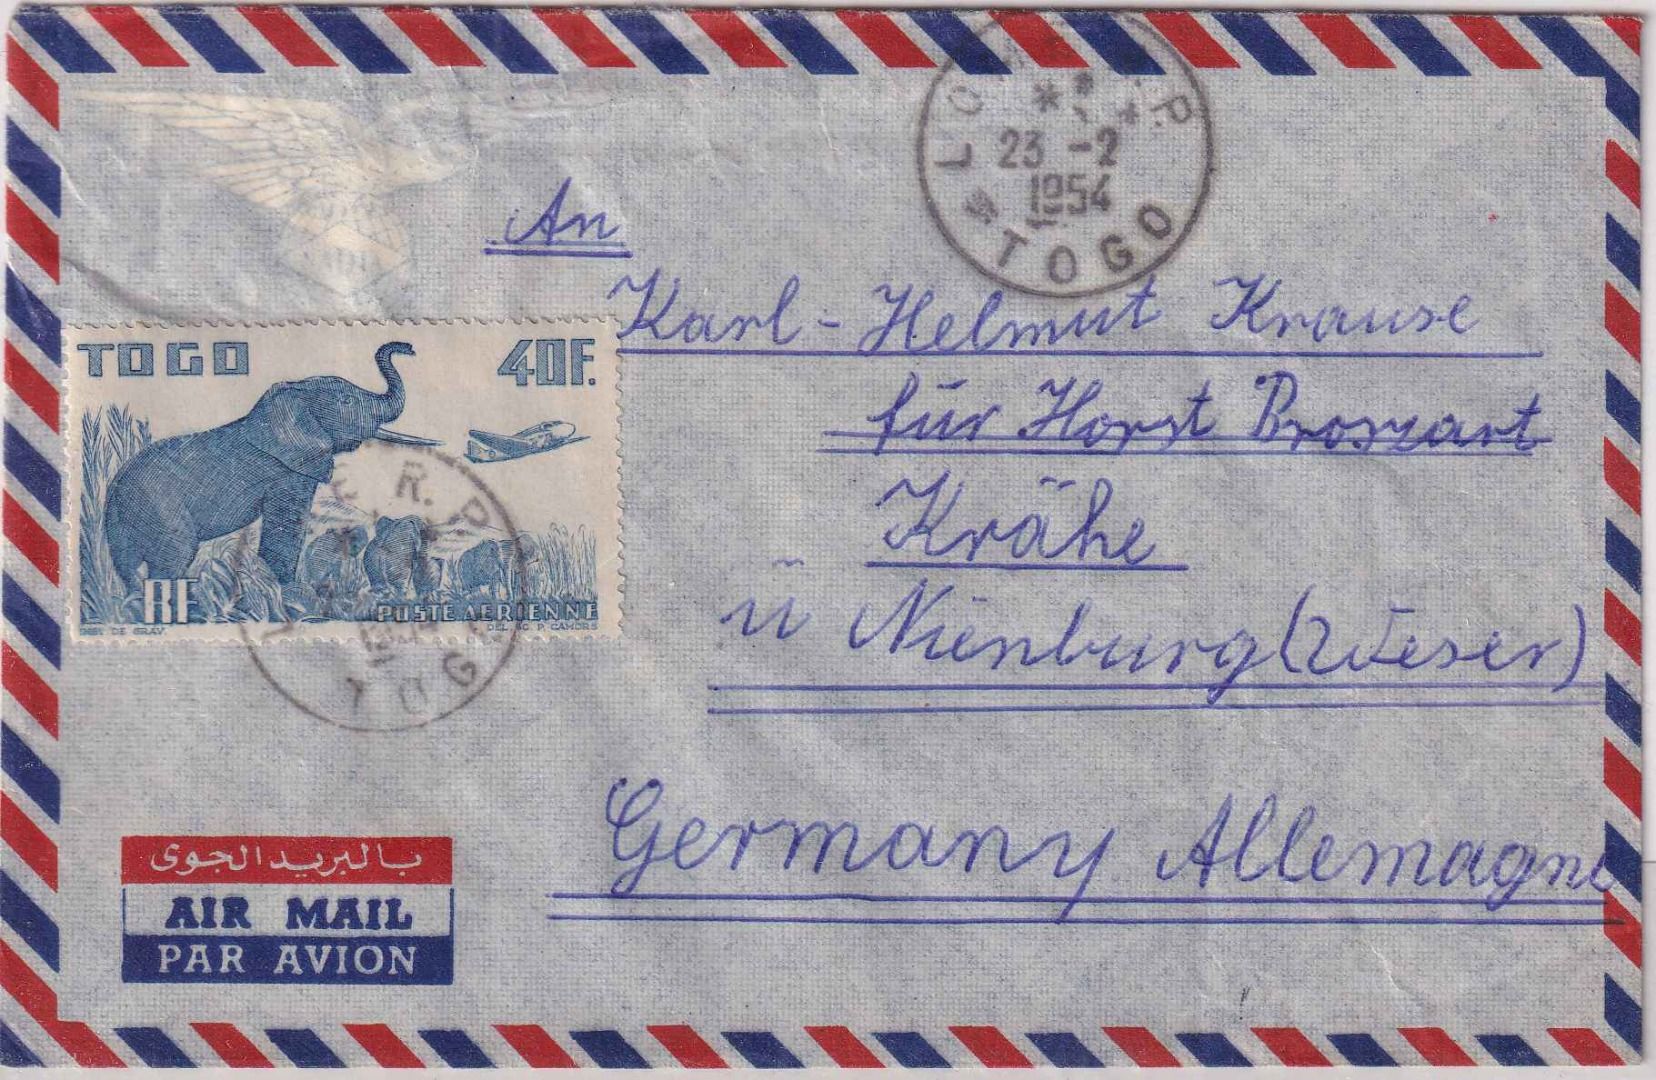 LOME R.P.
23 -2
1954
TOGO
An
Karl-Helmut Krause
für Horst Broszart
Krähe
ü Nienburg (Weser)
Germany Allemagne
TOGO 40F.
RF POSTE AERIENNE
DEL. SC. P. CAMORS
LOME R.P.
TOGO
بالبريد الجوى
AIR MAIL
PAR AVION